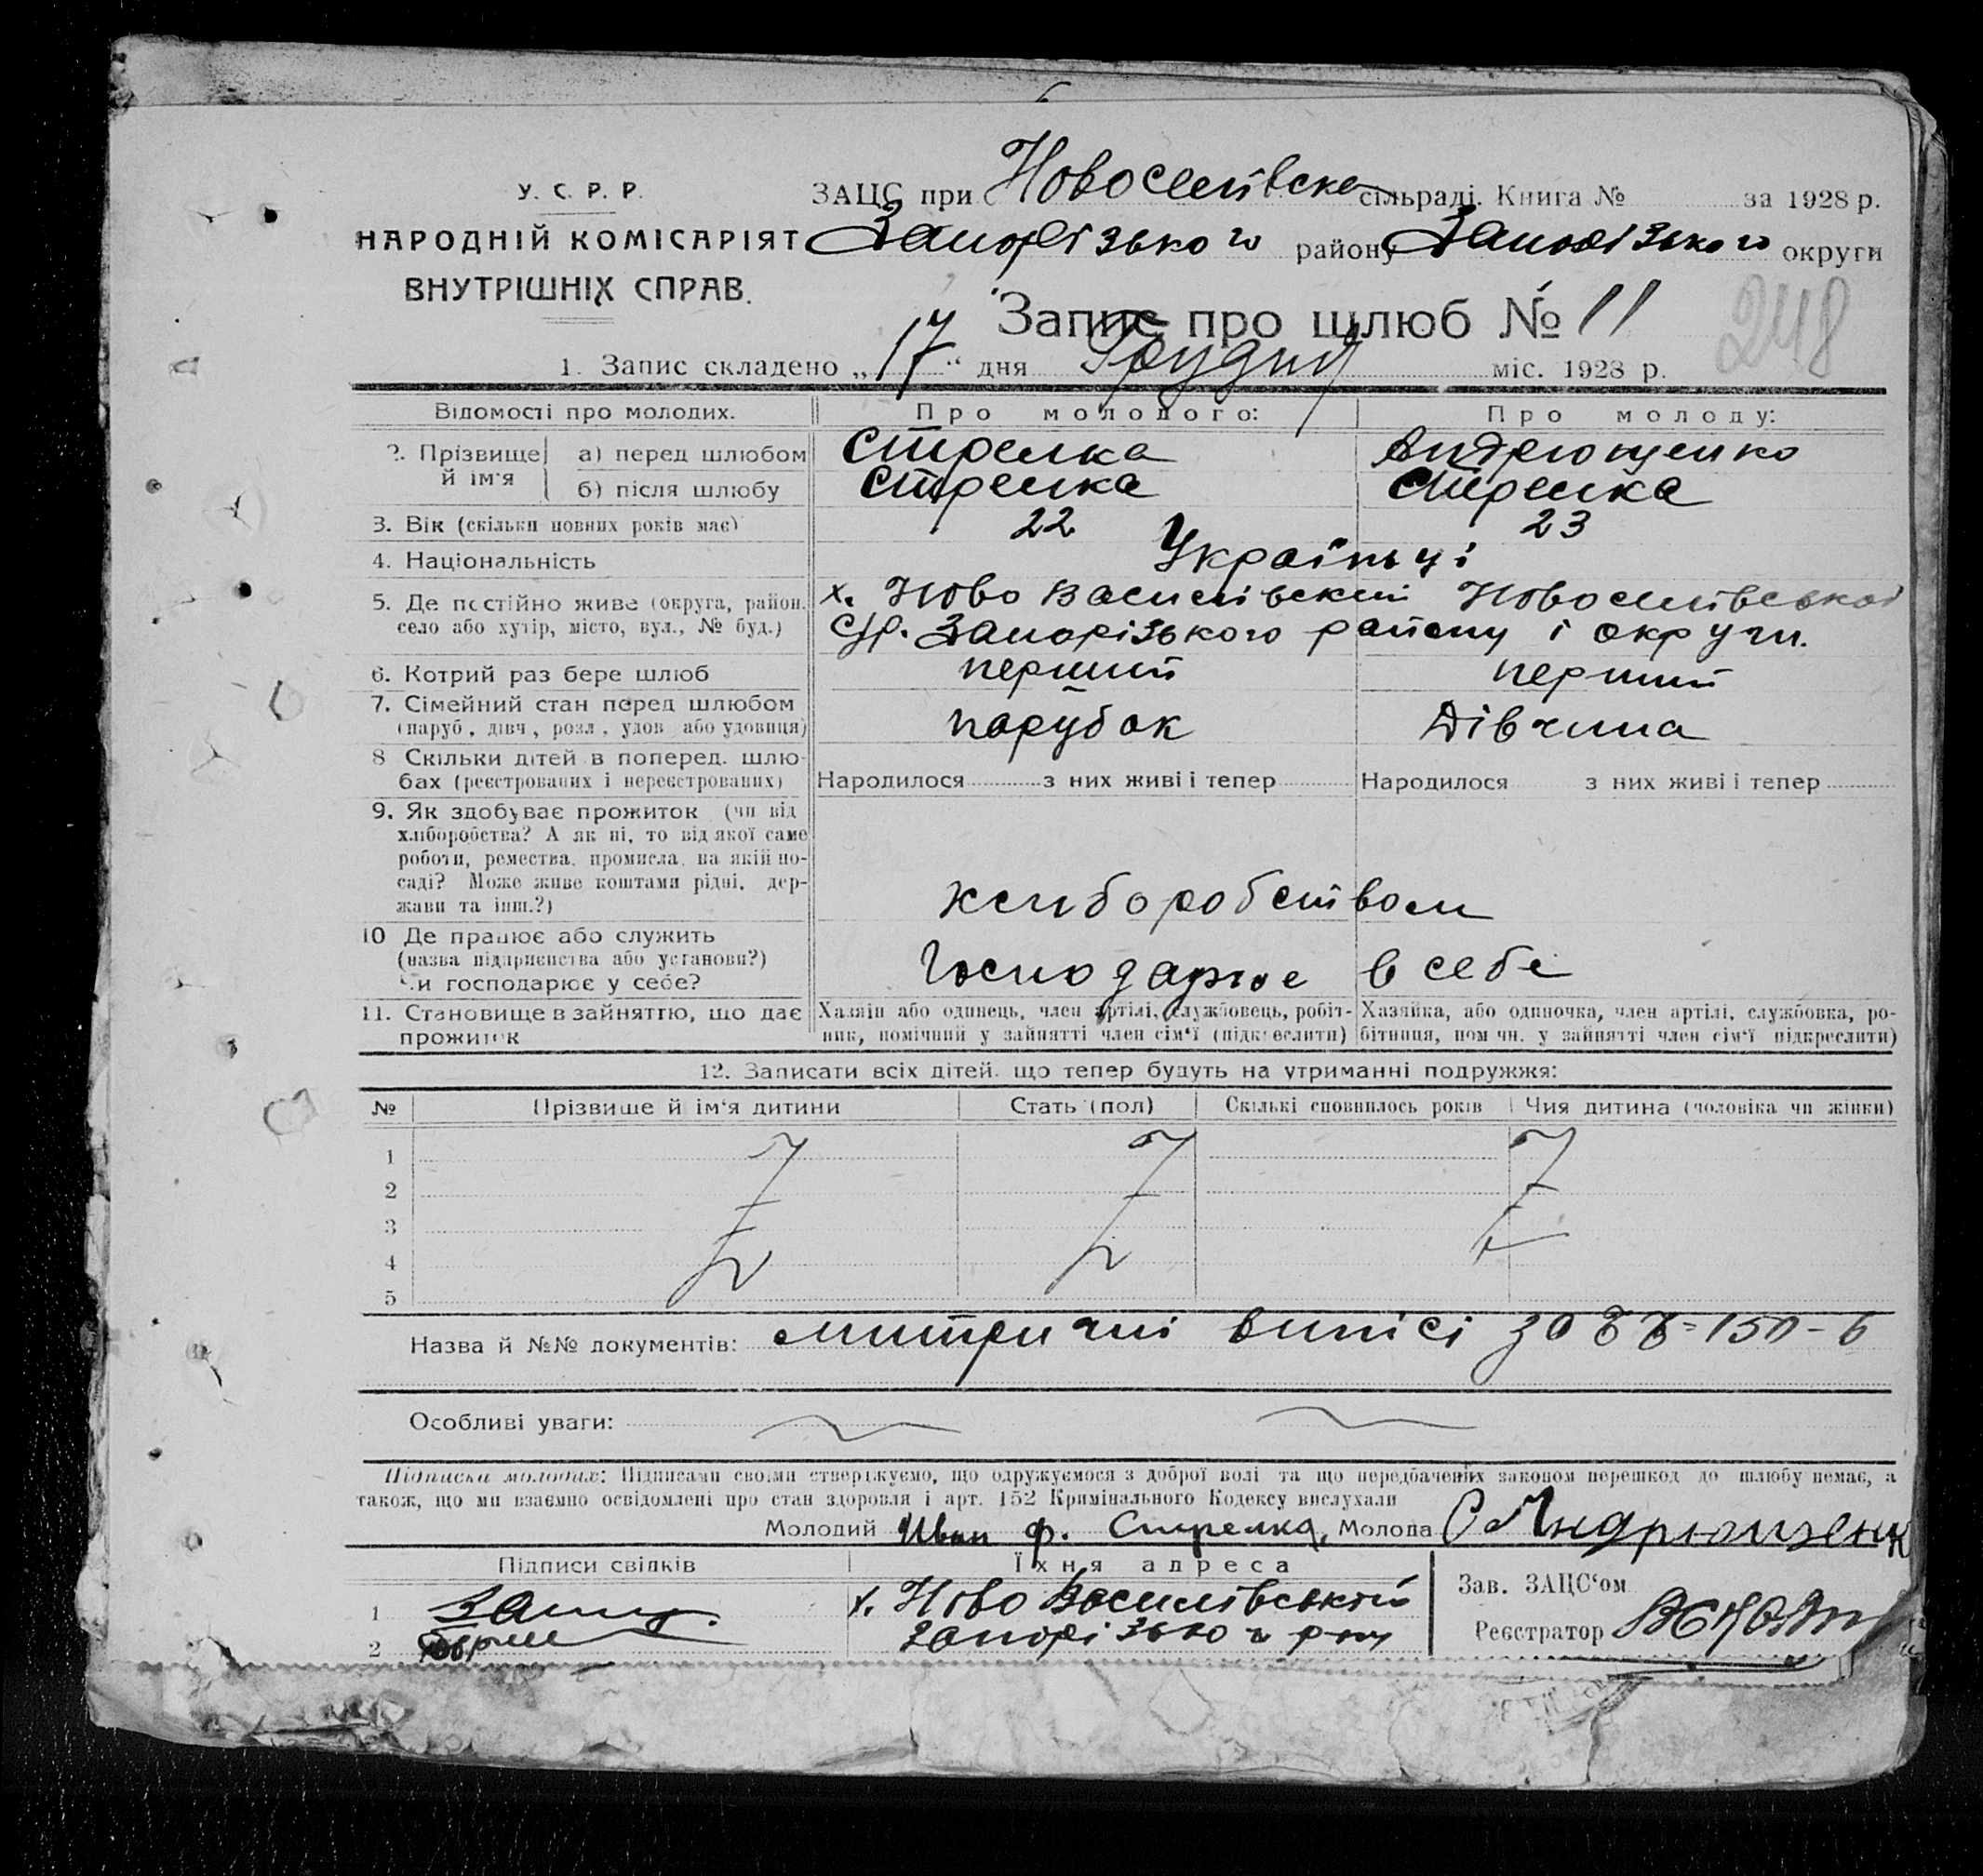 У. С. Р. Р.
НАРОДНІЙ КОМІСАРІЯТ
ВНУТРІШНІХ СПРАВ.
ЗАЦС при Новоселівска сільраді. Книга № за 1928 р.
Запорізького району Запорізького округи
Запис про шлюб № 11
248
1. Запис складено „17“ дня Грудня міс. 1928 р.
Відомості про молодих. Про молодого: Про молоду:
2. Прізвище й ім'я а) перед шлюбом Стрелка Андрющенко
б) після шлюбу Стрелка Стрелка
3. Вік (скільки повних років має) 22 23
4. Національність Українці
5. Де постійно живе (округа, район, х. Ново Василівский Новоселівської
село або хутір, місто, вул., № буд.) с/р. Запорізького району і округи.
6. Котрий раз бере шлюб перший перший
7. Сімейний стан перед шлюбом
(паруб, дівч, розл, удов або удовиця) парубок Дівчина
8 Скільки дітей в поперед. шлю-
бах (реєстрованих і нереєстрованих) Народилося з них живі і тепер Народилося з них живі і тепер
9. Як здобуває прожиток (чи від
хліборобства? А як ні, то від якої саме
роботи, ремества, промисла, на якій по-
саді? Може живе коштами рідні, дер-
жави та інш.?) хліборобством
10 Де працює або служить
(назва підприємства або установи?) Господарює в себе
Чи господарює у себе?
11. Становище в зайняттю, що дає Хазяїн або одинець, член артілі, службовець, робіт- Хазяйка, або одиночка, член артілі, службовка, ро-
прожиток ник, помічний у зайнятті член сім'ї (підкреслити) бітниця, пом чн. у зайнятті член сім'ї підкреслити)
12. Записати всіх дітей, що тепер будуть на утриманні подружжя:
№ Прізвище й ім'я дитини Стать (пол) Скількі сповнилось років Чия дитина (чоловіка чи жінки)
1
2
3
4
5
Назва й №№ документів: митричні виписі за
Особливі уваги:
Підписка молодих: Підписами своїми стверджуємо, що одружуємося з доброї волі та що передбачених законом перешкод до шлюбу немає, а
також, що ми взаємно освідомлені про стан здоровля і арт. 152 Кримінального Кодексу вислухали
Молодий Иван Ф. Стрелка, Молода С Андрющенк
Підписи свідків Їхня адреса
1 х. Ново Василівський
2 Запорізького р-ну
Зав. ЗАЦС'ом
Реєстратор